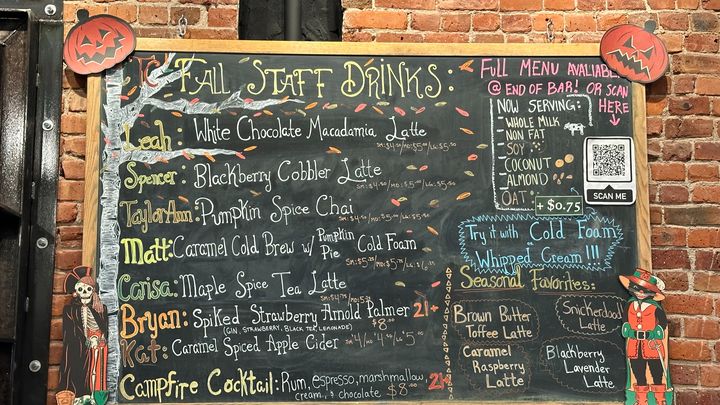 Fall Staff Drinks:
Leah: White Chocolate Macadamia Latte
Spencer: Blackberry Cobbler Latte
TaylorAnn: Pumpkin Spice Chai
Matt: Caramel Cold Brew w/ Pumpkin Pie Cold Foam
Carisa: Maple Spice Tea Latte
Bryan: Spiked Strawberry Arnold Palmer 21+
(Gin, Strawberry, Black Tea, Lemonade) $8.00
Kat: Caramel Spiced Apple Cider
Campfire Cocktail: Rum, espresso, marshmallow, 21+
cream, & chocolate $8.00
Full Menu Avaliable
@ End of Bar! or Scan
Here
Now Serving:
-Whole Milk
-Non Fat
-Soy
-Coconut
-Almond
-Oat:
+$0.75
SCAN ME
Try it with Cold Foam
or
Whipped Cream!!!
Seasonal Favorites:
Brown Butter
Toffee Latte
Snickerdool
Latte
Caramel
Raspberry
Latte
Blackberry
Lavender
Latte